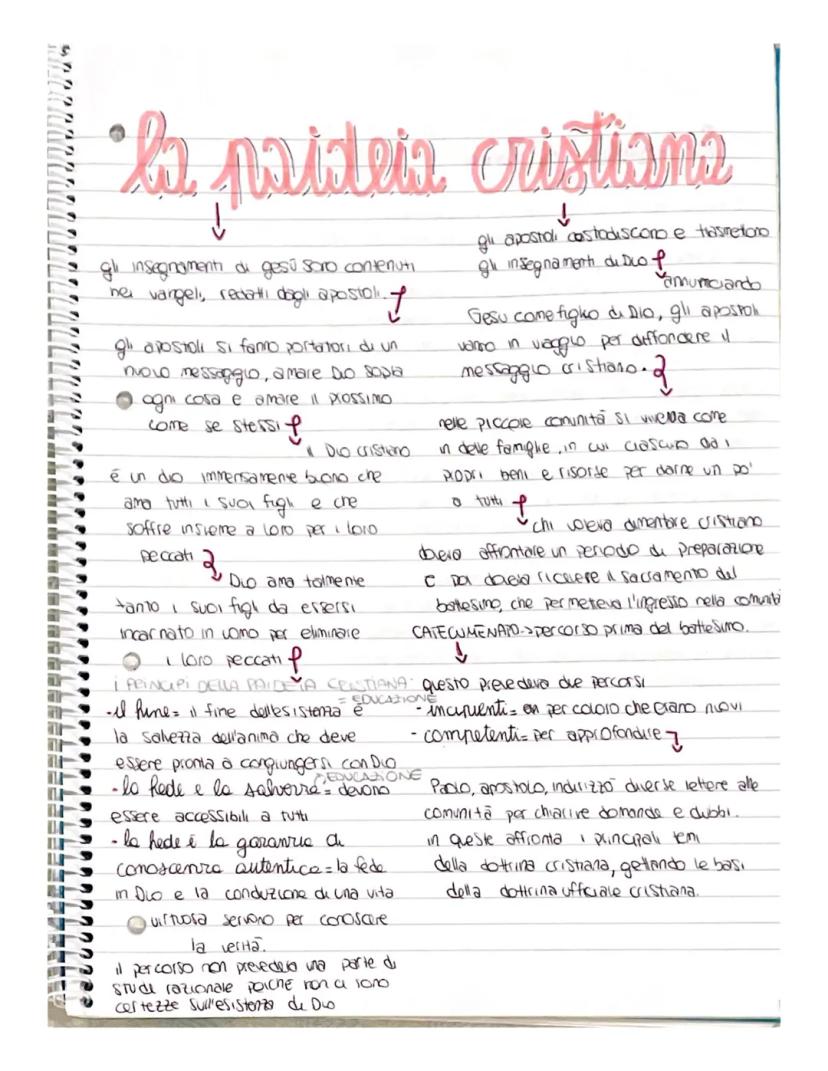 la paideia cristiana
gli insegnamenti di gesù sono contenuti
nei vangeli, redatti dagli apostoli.
gli apostoli si fanno portatori di un
nuovo messaggio, amare Dio sopra
ogni cosa e amare il prossimo
come se stessi
il Dio cristiano
è un dio immensamente buono che
ama tutti i suoi figli e che
soffre insieme a loro per i loro
peccati
Dio ama talmente
tanto i suoi figli da essersi
incarnato in uomo per eliminare
i loro peccati
i PRINCIPI DELLA PAIDEIA CRISTIANA:
= EDUCAZIONE
- il fine = il fine dell'esistenza è
la salvezza dell'anima che deve
essere pronta a congiungersi con Dio
EDUCAZIONE
- la fede e la salvezza = devono
essere accessibili a tutti
- la fede è la garanzia di
conoscenza autentica = la fede
in Dio e la conduzione di una vita
virtuosa servono per conoscere
la verità.
il percorso non prevedeva una parte di
studi razionale poiché non ci sono
certezze sull'esistenza di Dio
gli apostoli custodiscono e trasmettono
gli insegnamenti di Dio
annunciando
Gesù come figlio di Dio, gli apostoli
vanno in viaggio per diffondere il
messaggio cristiano.
nelle piccole comunità si viveva come
in delle famiglie, in cui ciascuno dà i
propri beni e risorse per darne un po'
a tutti
chi voleva diventare cristiano
doveva affrontare un periodo di preparazione
e poi doveva ricevere il sacramento del
battesimo, che permetteva l'ingresso nella comunità
CATECUMENATO -> percorso prima del battesimo.
questo prevedeva due percorsi
- incipienti = per coloro che erano nuovi
- competenti = per approfondire
Paolo, apostolo, indirizzò diverse lettere alle
comunità per chiarire domande e dubbi.
in queste affronta i principali temi
della dottrina cristiana, gettando le basi
della dottrina ufficiale cristiana.